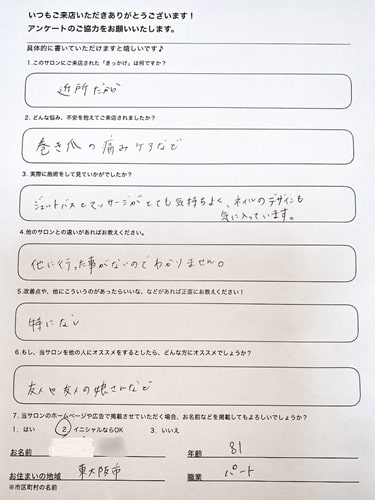 いつもご来店いただきありがとうございます!
アンケートのご協力をお願いいたします。
具体的に書いていただけますと嬉しいです♪
1.このサロンにご来店された「きっかけ」は何ですか?
近所だから
2. どんな悩み、不安を抱えてご来店されましたか?
巻き爪の痛みケアなど
3. 実際に施術をして見ていかがでしたか?
ジェットバスとマッサージがとても気持ちよく、ネイルのデザインも
気に入っています。
4.他のサロンとの違いがあればお教えください。
他に行った事がないのでわかりません。
5.改善点や、他にこういうのがあったらいいな、などがあれば正直にお教えください!
特になし
6.もし、当サロンを他の人にオススメをするとしたら、どんな方にオススメでしょうか?
友人や友人の娘さんなど
7. 当サロンのホームページや広告で掲載させていただく場合、お名前などを掲載してもよろしいでしょうか?
1、はい 2、イニシャルならOK 3、いいえ
お名前 年齢 81
お住まいの地域 東大阪市 職業 パート
※市区町村の名前